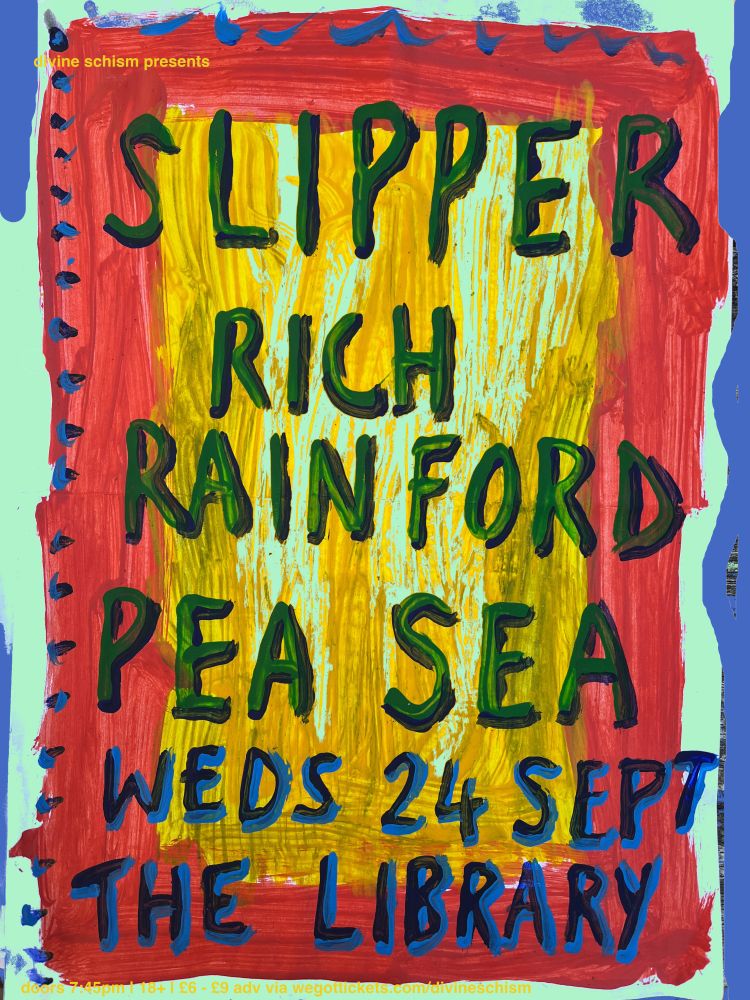 divine schism presents
SLIPPER
RICH
RAINFORD
PEA SEA
WEDS 24 SEPT
THE LIBRARY
doors 7:45pm I 18+ I £6 - £9 adv via wegottickets.com/divineschism